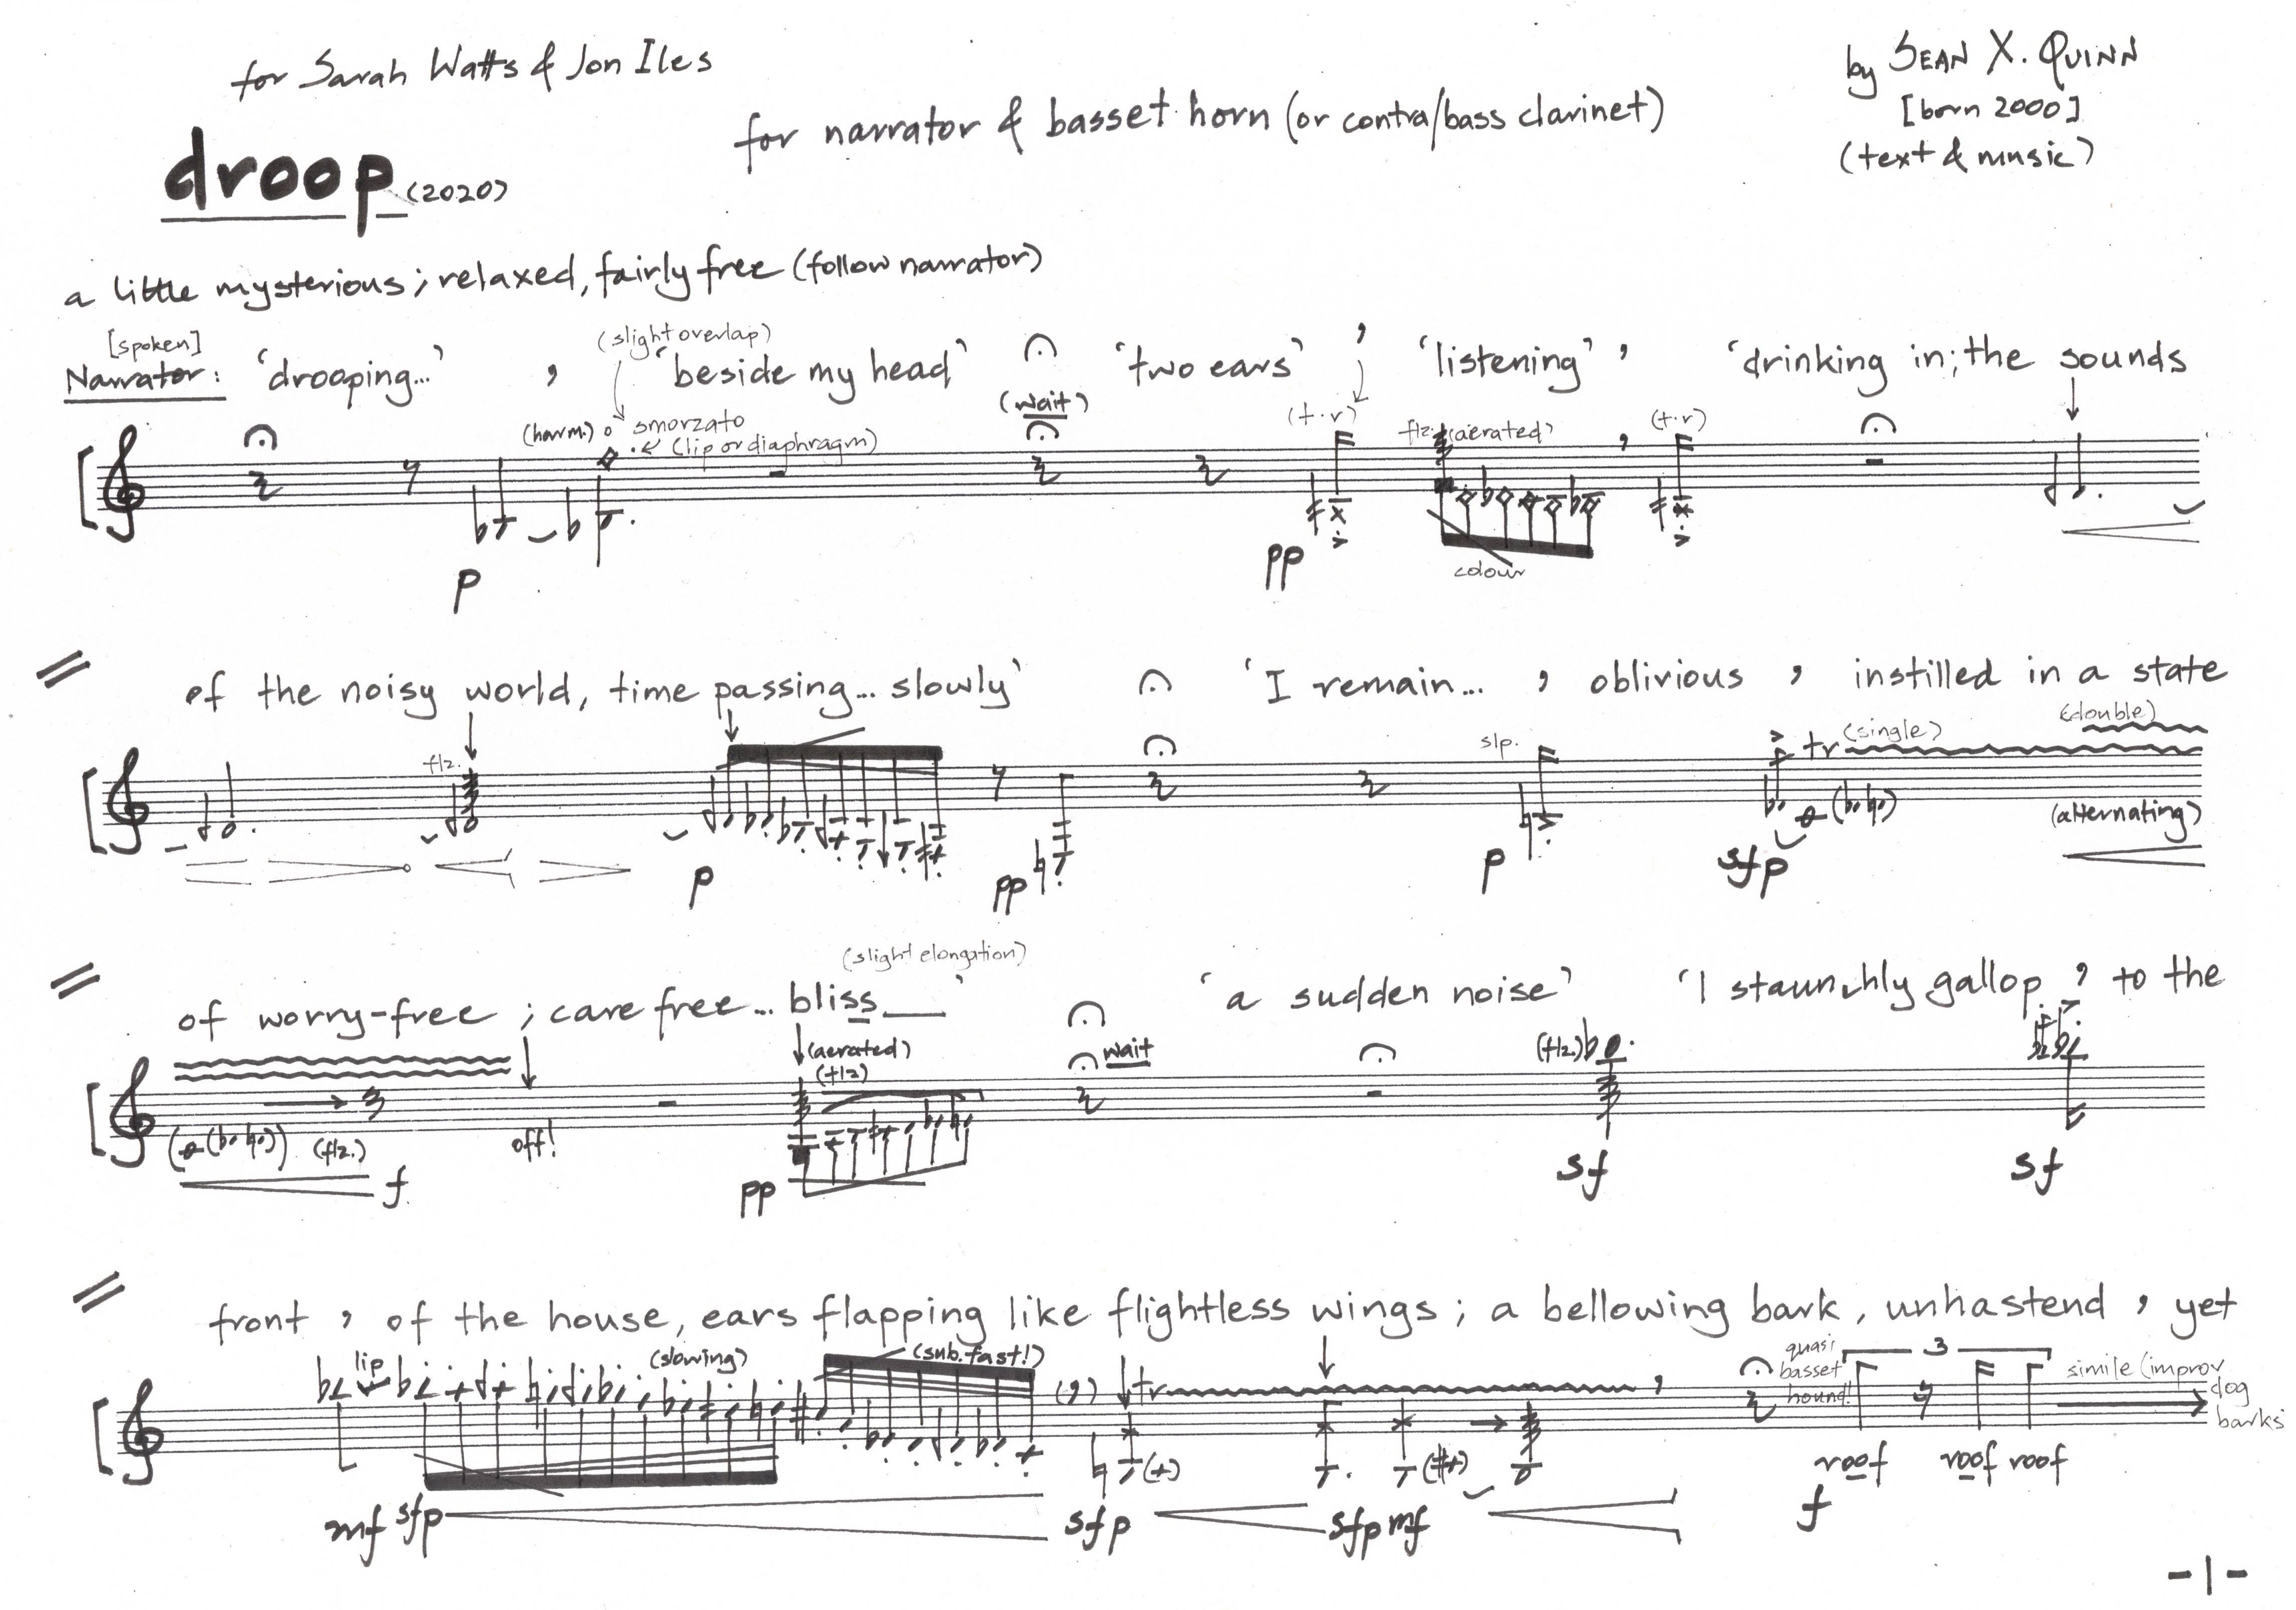 for Sarah Watts & Jon Iles
by SEAN X. QUINN
for narrator & basset horn (or contra/bass clarinet)
[born 2000]
(text & music)
droop (2020)
a little mysterious; relaxed, fairly free (follow narrator)
[spoken]
(slight overlap)
Narrator: 'drooping...' , 'beside my head' 'two ears' , 'listening' , 'drinking in; the sounds
(wait)
(harm.) o smorzato
(lip or diaphragm)
(t.r)
flz. (aerated)
(t.r)
p
pp
colour
of the noisy world, time passing... slowly' 'I remain... , oblivious , instilled in a state
flz.
slp.
tr (single)
(double)
(alternating)
p
pp
p
sfp
(slight elongation)
of worry-free ; care free... bliss___' 'a sudden noise' 'I staunchly gallop , to the
(aerated)
(flz)
wait
(flz.)
(flz.)
off!
f
pp
sf
sf
front , of the house, ears flapping like flightless wings ; a bellowing bark, unhastend , yet
lip
(slowing)
(sub. fast!)
(,)
tr
quasi basset hound!
3
simile (improv dog barks
roof roof roof
mf sfp
sfp
sfp mf
f
-1-